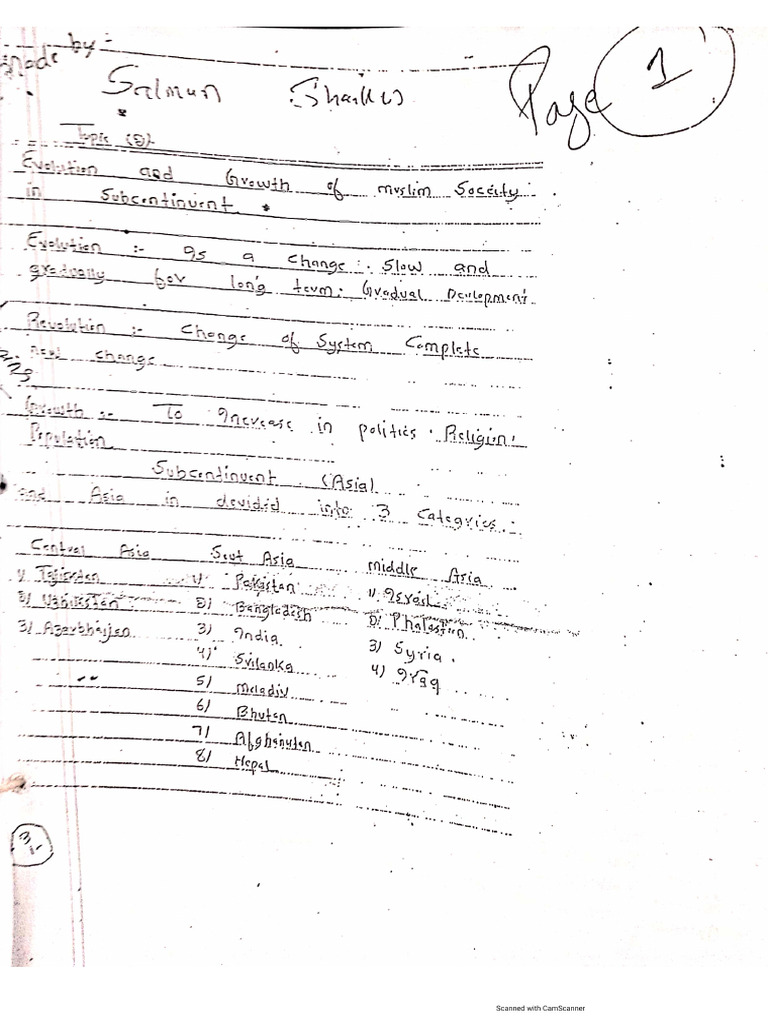 made by :-
Salman Shaikh
Page 1
Topic (2)
Evolution and Growth of muslim Soceity
in Subcontinuent.
Evolution :- Is a change. Slow and
gradually for long term. Gradual Development
Revolution :- Change of System Complete
new change
Growth :- To Increase in politics. Religion.
Population
Subcontinuent (Asia)
and Asia in devided into 3 Categries.
Central Asia Sout Asia middle Asia
1) Tajisten 1) Pakistan 1) Isreal
2) Uzbikistan 2) Bangladesh 2) Phalestion
3) Azerbhaijen 3) India 3) Syria.
4) Srilanka 4) Iraq
5) Maladiv
6) Bhutan
7) Afghanistan
8) Nepal
Scanned with CamScanner